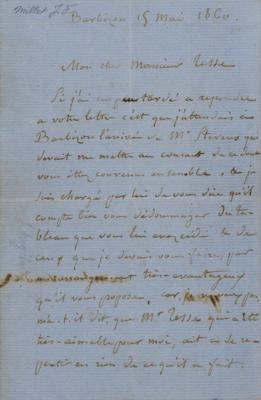 Millet J. F.
Barbizon 15 Mai 1860.
Mon cher Monsieur Tesse
Si j'ai un peu tardé a repondre
a votre lettre c'est que j'attendais a
Barbizon l'arrivée de Mr Stevens qui
devait me mettre au courant de ce dont
vous étiez convenu ensemble. & je
suis chargé par lui de vous dire qu'il
compte bien vous dédommager du ta-
bleau que vous lui avez cédé & de
ceux que je devais vous faire, par
très-avantageux
qu'il vous proposera, car, je
m'a-t-il dit, que Mr Tesse qui a été
très-aimable pour moi, ait a se re-
pentir en rien de ce qu'il a fait.